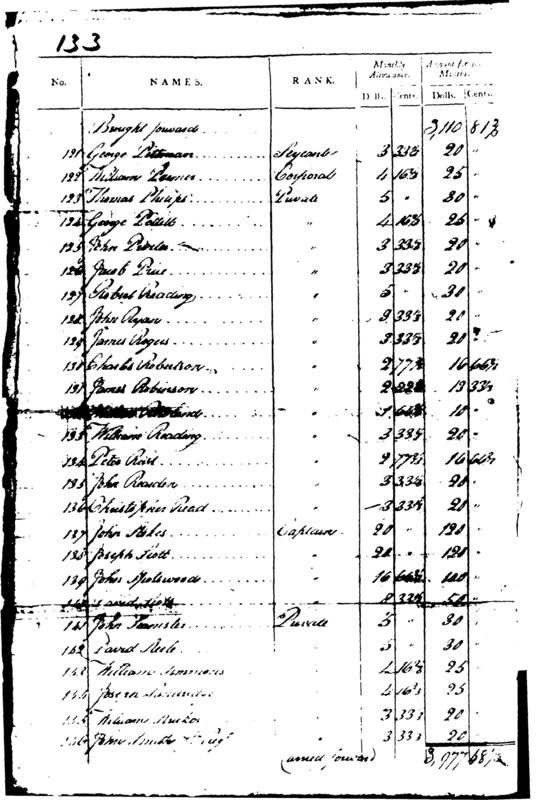 133
No. NAMES. RANK. Monthly Allowance. Amount for Months.
Dolls. Cents. Dolls. Cents.
Brought forward 3,110 81⅓
121 George Pittman Sergeant 3 33⅓ 20 "
122 William Corporal 4 16⅔ 25 "
123 Thomas Philips Private 5 " 30 "
124 George Pettitt " 4 16⅔ 25 "
125 John " 3 33⅓ 20 "
126 Jacob " 3 33⅓ 20 "
127 Robert Reading " 5 " 30 "
128 John Ryan " 3 33⅓ 20 "
129 James Rogers " 3 33⅓ 20 "
130 Charles Robertson " 2 77⅔ 16 66⅔
131 James Robinson " 2 13 33⅓
" 1 66⅔ 10 "
133 William Reading " 3 33⅓ 20 "
134 Peter " 2 77⅔ 16 66⅔
135 John Rearden " 3 33⅓ 20 "
136 Christopher Read " 3 33⅓ 20 "
137 John Stokes Captain 20 " 120 "
138 Joseph Scott " 20 " 120 "
139 John Spotswood " 16 66⅔ 100 "
David " 8 33⅓ 50 "
141 John Private 5 " 30 "
142 David Steele " 5 " 30 "
143 William Simmons " 4 16⅔ 25 "
144 Joseph " 4 16⅔ 25 "
145 William " 3 33⅓ 20 "
146 John Smith " 3 33⅓ 20 "
Carried forward 3,977